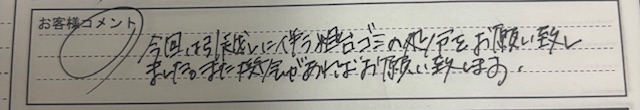 お客様コメント
今回は引越しに伴う粗大ゴミの処分をお願い致し
ました。また機会があればお願い致します。